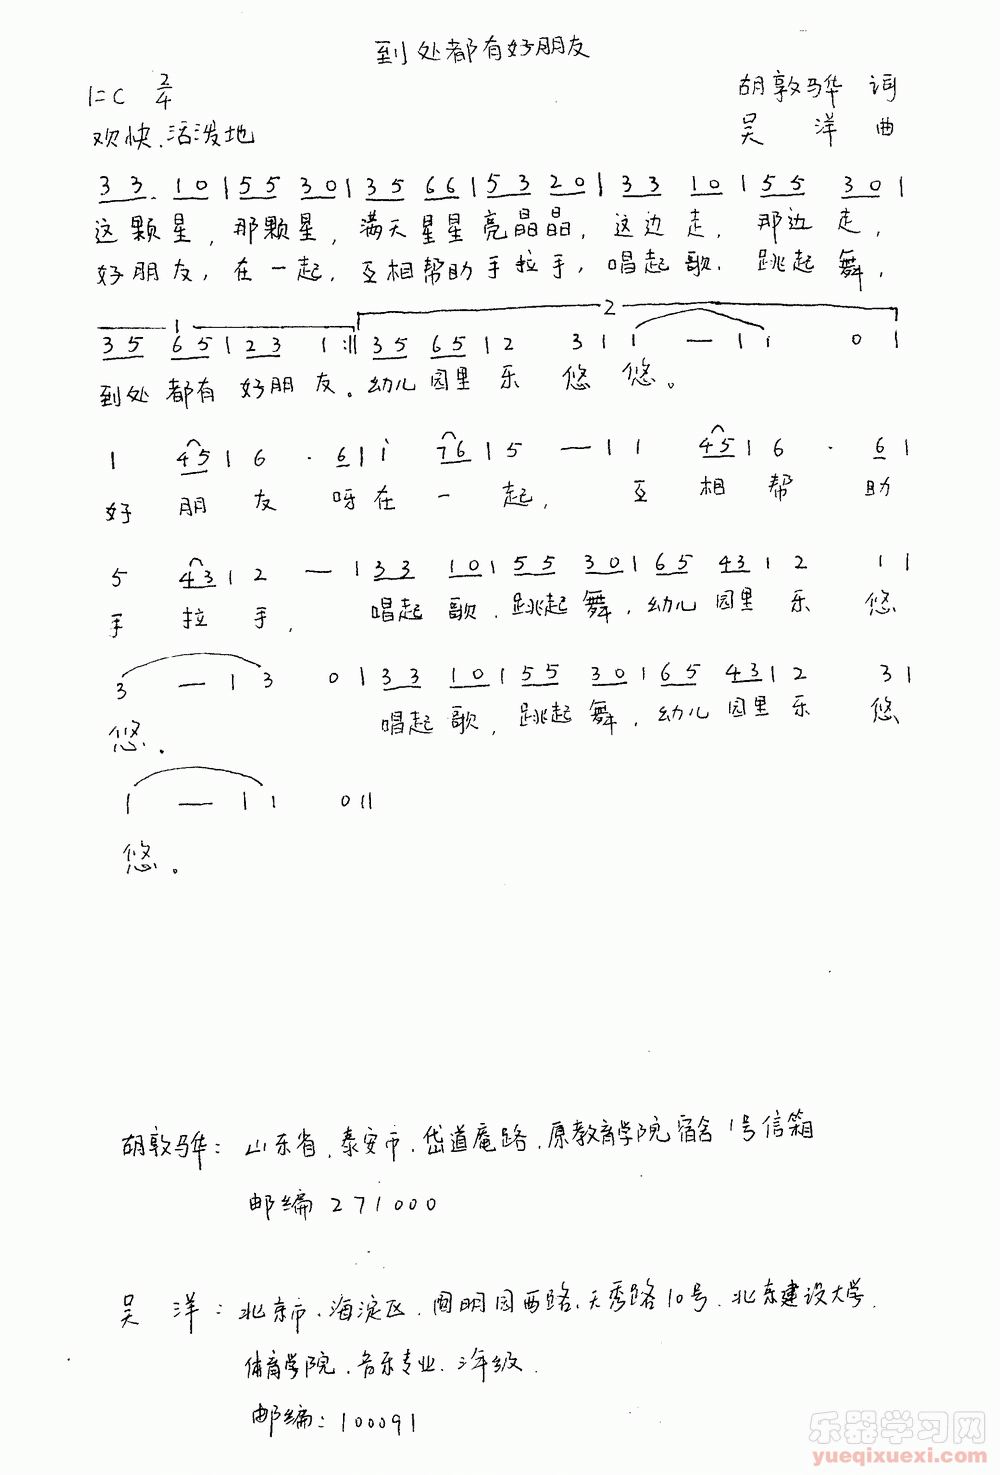 到处都有好朋友
1=C 2/4
胡敦骅 词
欢快、活泼地
吴 洋 曲
3 3. 1 0 | 5 5 3 0 | 3 5 6 6 | 5 3 2 0 | 3 3 1 0 | 5 5 3 0 |
这颗星，那颗星，满天星星亮晶晶，这边走，那边走，
好朋友，在一起，互相帮助手拉手，唱起歌、跳起舞，
1 2
3 5 6 5 | 2 3 1 :|| 3 5 6 5 | 2 3 | i — | i 0 |
到处都有好朋友。幼儿园里乐悠悠。
1 4 5 | 6 · 6 | i 7 6 | 5 — | 1 4 5 | 6 · 6 |
好朋友呀在一起，互相帮助
5 4 3 | 2 — | 3 3 1 0 | 5 5 3 0 | 6 5 4 3 | 2 1 |
手拉手，唱起歌、跳起舞，幼儿园里乐悠
3 — | 3 0 | 3 3 1 0 | 5 5 3 0 | 6 5 4 3 | 2 3 |
悠。唱起歌，跳起舞，幼儿园里乐悠
1 — | 1 0 ||
悠。
胡敦骅：山东省、泰安市、岱道庵路、原教育学院宿舍1号信箱
邮编271000
吴 洋：北京市、海淀区、圆明园西路、天秀路10号、北京建设大学、
体育学院、音乐专业、三年级、
邮编：100091
乐器学习网
yueqixuexi.com